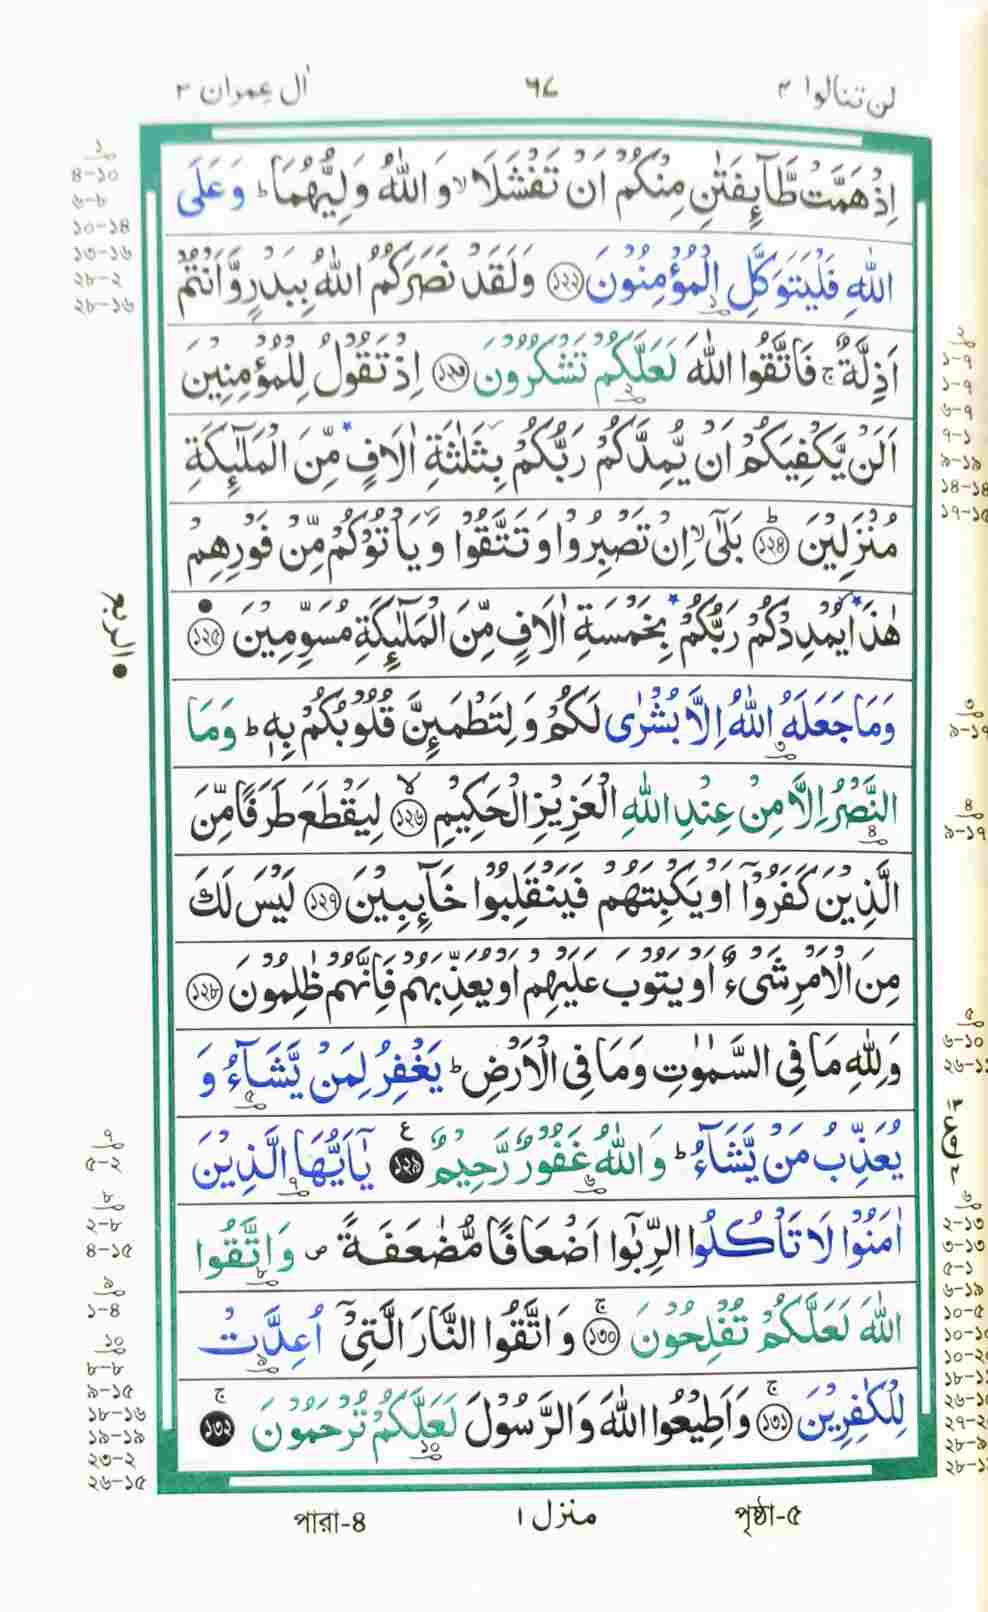 لن تنالوا ٤
٦٨
اٰل عِمران ٣
اِذْ هَمَّتْ طَّآئِفَتٰنِ مِنْكُمْ اَنْ تَفْشَلَا ۙ وَاللّٰهُ وَلِيُّهُمَا ؕ وَعَلَى
اللّٰهِ فَلْيَتَوَكَّلِ الْمُؤْمِنُوْنَ ১২২ وَلَقَدْ نَصَرَكُمُ اللّٰهُ بِبَدْرٍ وَّاَنْتُمْ
اَذِلَّةٌ ۚ فَاتَّقُوا اللّٰهَ لَعَلَّكُمْ تَشْكُرُوْنَ ১২৩ اِذْ تَقُوْلُ لِلْمُؤْمِنِيْنَ
اَلَنْ يَّكْفِيَكُمْ اَنْ يُّمِدَّكُمْ رَبُّكُمْ بِثَلٰثَةِ اٰلَافٍ مِّنَ الْمَلٰٓئِكَةِ
مُنْزَلِيْنَ ؕ ১২৪ بَلٰٓى ۙ اِنْ تَصْبِرُوْا وَتَتَّقُوْا وَيَاْتُوْكُمْ مِّنْ فَوْرِهِمْ
هٰذَا يُمْدِدْكُمْ رَبُّكُمْ بِخَمْسَةِ اٰلَافٍ مِّنَ الْمَلٰٓئِكَةِ مُسَوِّمِيْنَ ১২৫
الربع
وَمَا جَعَلَهُ اللّٰهُ اِلَّا بُشْرٰى لَكُمْ وَلِتَطْمَئِنَّ قُلُوْبُكُمْ بِهٖ ؕ وَمَا
النَّصْرُ اِلَّا مِنْ عِنْدِ اللّٰهِ الْعَزِيْزِ الْحَكِيْمِ ۙ ১২৬ لِيَقْطَعَ طَرَفًا مِّنَ
الَّذِيْنَ كَفَرُوْٓا اَوْ يَكْبِتَهُمْ فَيَنْقَلِبُوْا خَآئِبِيْنَ ১২৭ لَيْسَ لَكَ
مِنَ الْاَمْرِ شَيْءٌ اَوْ يَتُوْبَ عَلَيْهِمْ اَوْ يُعَذِّبَهُمْ فَاِنَّهُمْ ظٰلِمُوْنَ ১২৮
وَلِلّٰهِ مَا فِي السَّمٰوٰتِ وَمَا فِي الْاَرْضِ ؕ يَغْفِرُ لِمَنْ يَّشَآءُ وَ
يُعَذِّبُ مَنْ يَّشَآءُ ؕ وَاللّٰهُ غَفُوْرٌ رَّحِيْمٌ ১২৯ يٰٓاَيُّهَا الَّذِيْنَ
اٰمَنُوْا لَا تَاْكُلُوا الرِّبٰٓوا اَضْعَافًا مُّضٰعَفَةً ۖ وَاتَّقُوا
اللّٰهَ لَعَلَّكُمْ تُفْلِحُوْنَ ۚ ১৩০ وَاتَّقُوا النَّارَ الَّتِيْٓ اُعِدَّتْ
لِلْكٰفِرِيْنَ ۚ ১৩১ وَاَطِيْعُوا اللّٰهَ وَالرَّسُوْلَ لَعَلَّكُمْ تُرْحَمُوْنَ ۚ ১৩২
পৃষ্ঠা-৫
منزل ١
পারা-৪
১
৪-১০
৬-৮
১০-১৪
১৩-১৬
২৮-২
২৮-১৬
৭
৫-২
৮
২-৮
৪-১৫
৯
১-৪
১০
৮-৮
৯-১৫
১৮-১৬
১৯-১৯
২৩-২
২৬-১৫